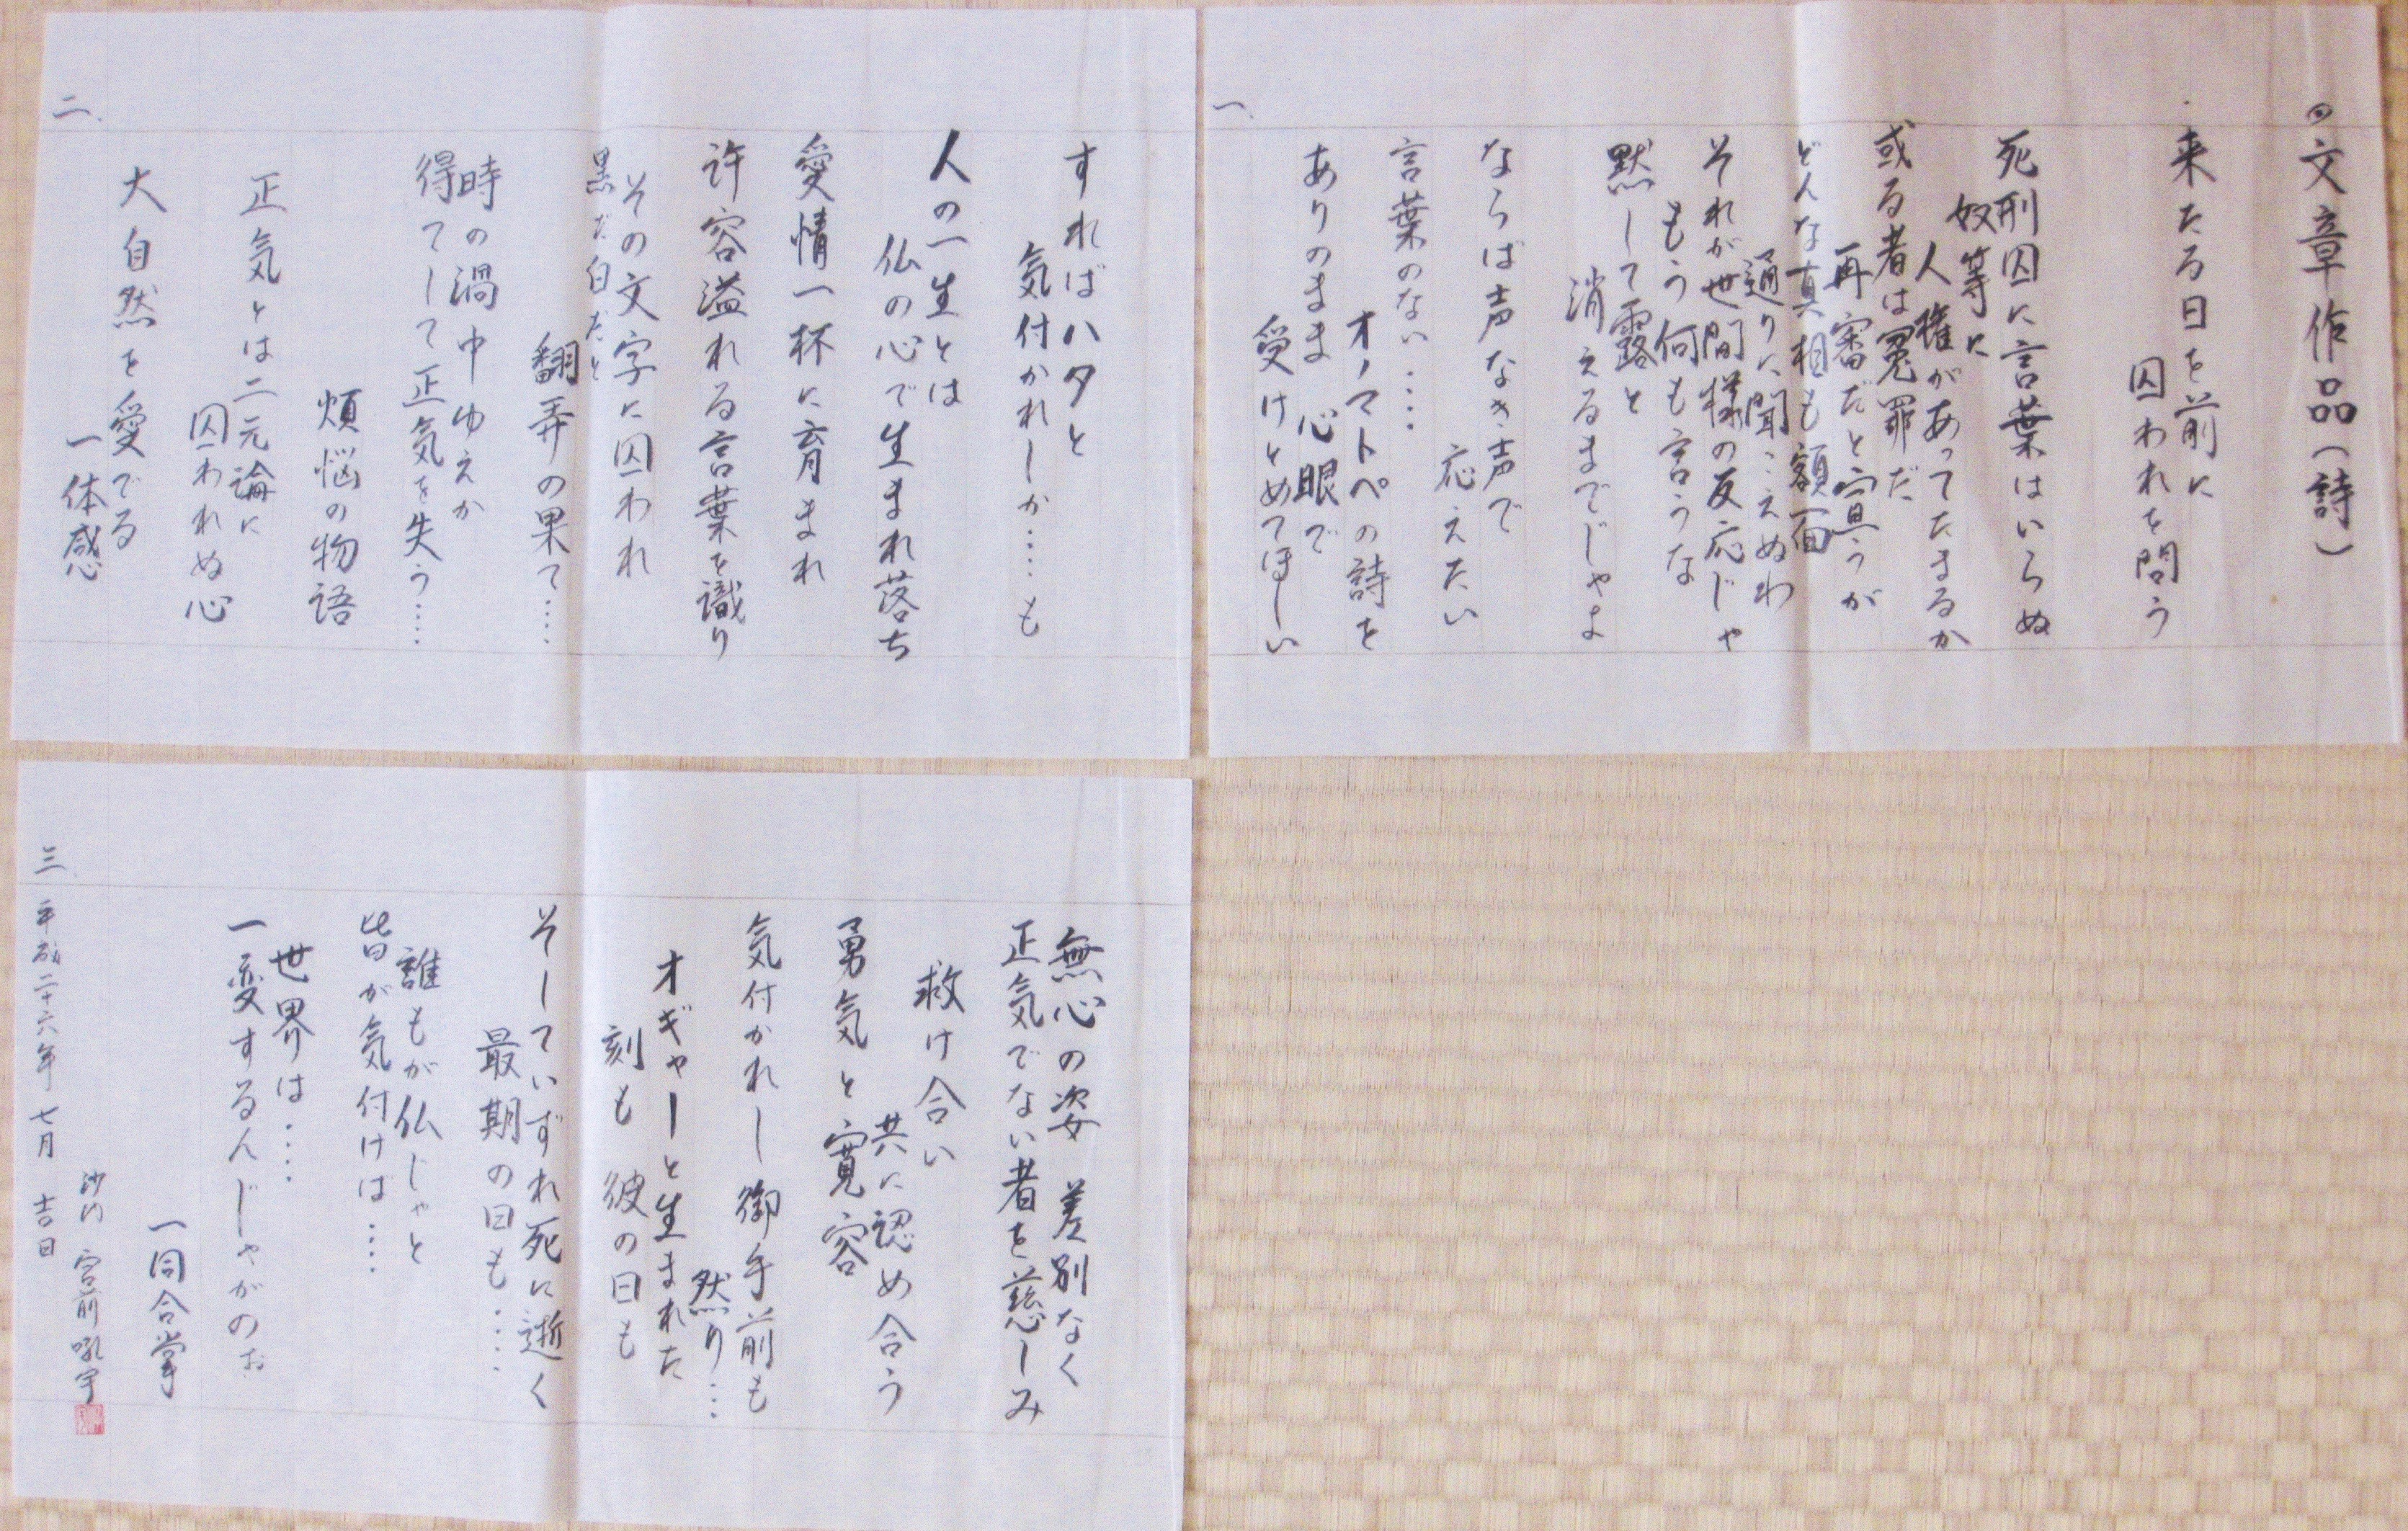 ◎文章作品(詩)
来たる日を前に
囚われを問う
死刑囚に言葉はいらぬ
奴等に
人権があってたまるか
或る者は冤罪だ
再審だと宣うが
どんな真相も額面
通りに聞こえぬわ
それが世間様の反応じゃ
もう何も言うな
黙して露と
消えるまでじゃよ
ならば声なき声で
応えたい
言葉のない‥‥
オノマトペの詩を
ありのまま 心眼で
受けとめてほしい
一、
すればハタと
気付かれしか‥‥も
人の一生とは
仏の心で生まれ落ち
愛情一杯に育まれ
許容溢れる言葉を識り
その文字に囚われ
黒だ白だと
翻弄の果て‥‥
時の渦中ゆえか
得てして正気を失う‥‥
煩悩の物語
正気とは二元論に
囚われぬ心
大自然を愛でる
一体感
二、
無心の姿 差別なく
正気でない者を慈しみ
救け合い
共に認め合う
勇気と寛容
気付かれし御手前も
然り‥‥
オギャーと生まれた
刻も 彼の日も
そしていずれ死に逝く
最期の日も‥‥
誰もが仏じゃと
皆が気付けは‥‥
世界は‥‥
一変するんじゃがのお
一同合掌
沙門 宮前
三 平成二十六年 七月 吉日